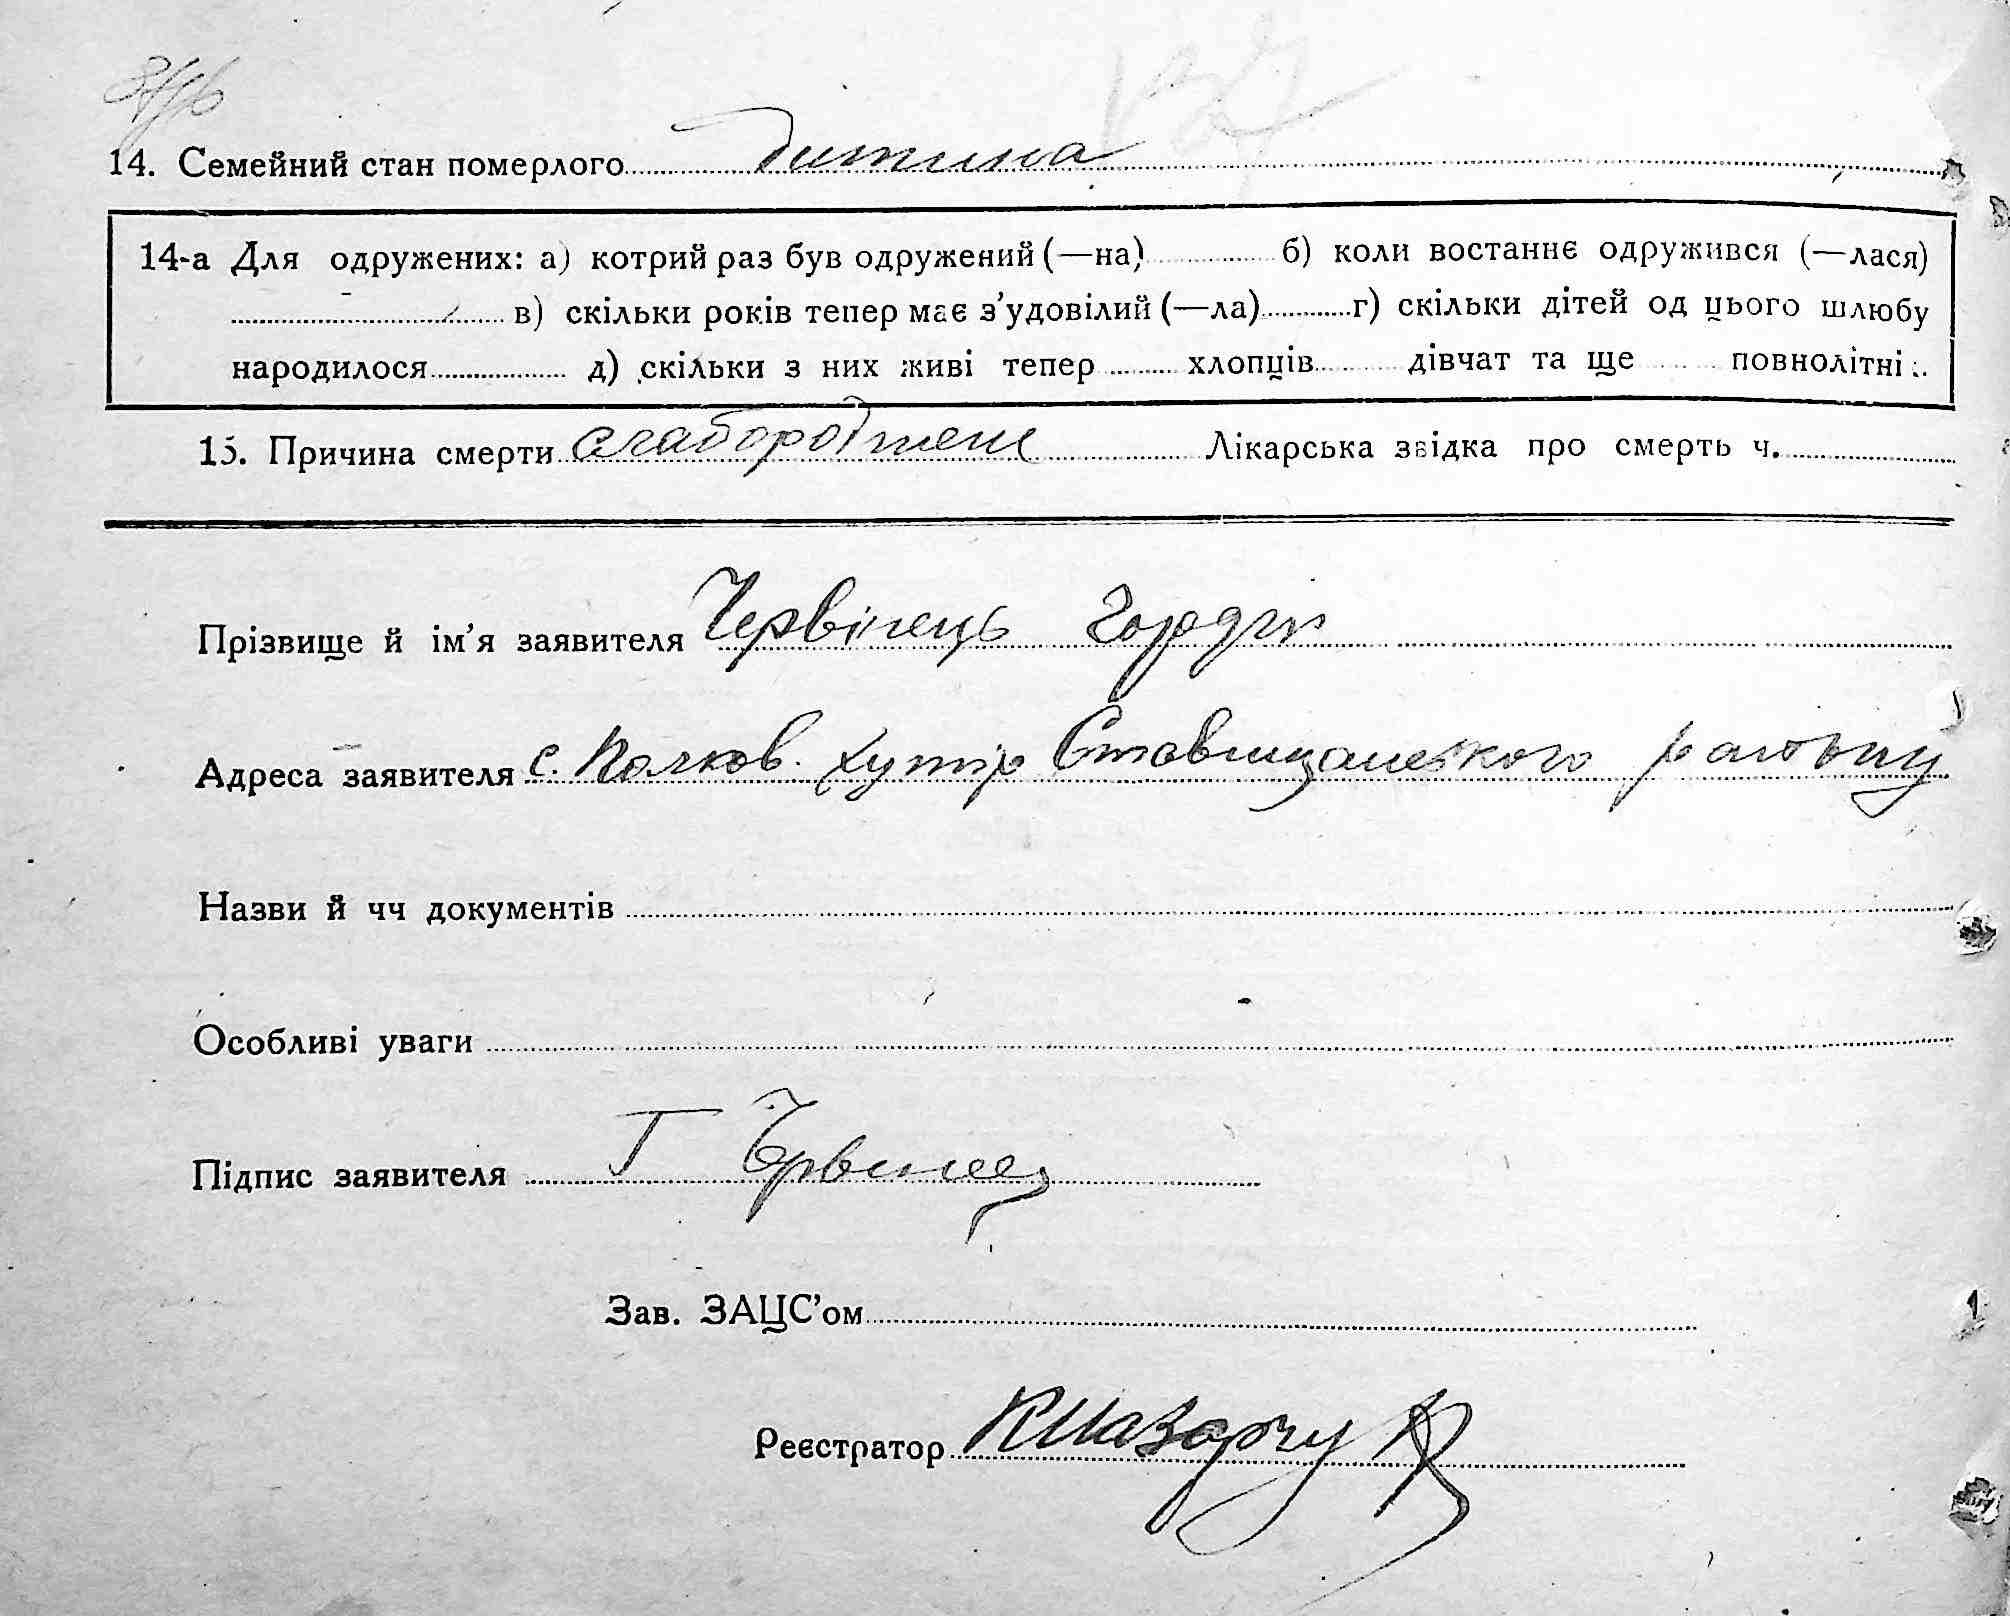 14. Семейний стан померлого дитина
14-а Для одружених: а) котрий раз був одружений (—на) б) коли востаннє одружився (—лася)
в) скільки років тепер має з'удовілий (—ла) г) скільки дітей од цього шлюбу
народилося д) скільки з них живі тепер хлопців дівчат та ще повнолітні
15. Причина смерти слабороджене Лікарська звідка про смерть ч.
Прізвище й ім'я заявителя Червінець Гордій
Адреса заявителя с. Полков. хутір Ставищанського району
Назви й чч документів
Особливі уваги
Підпис заявителя Г Червинец
Зав. ЗАЦС'ом
Реєстратор